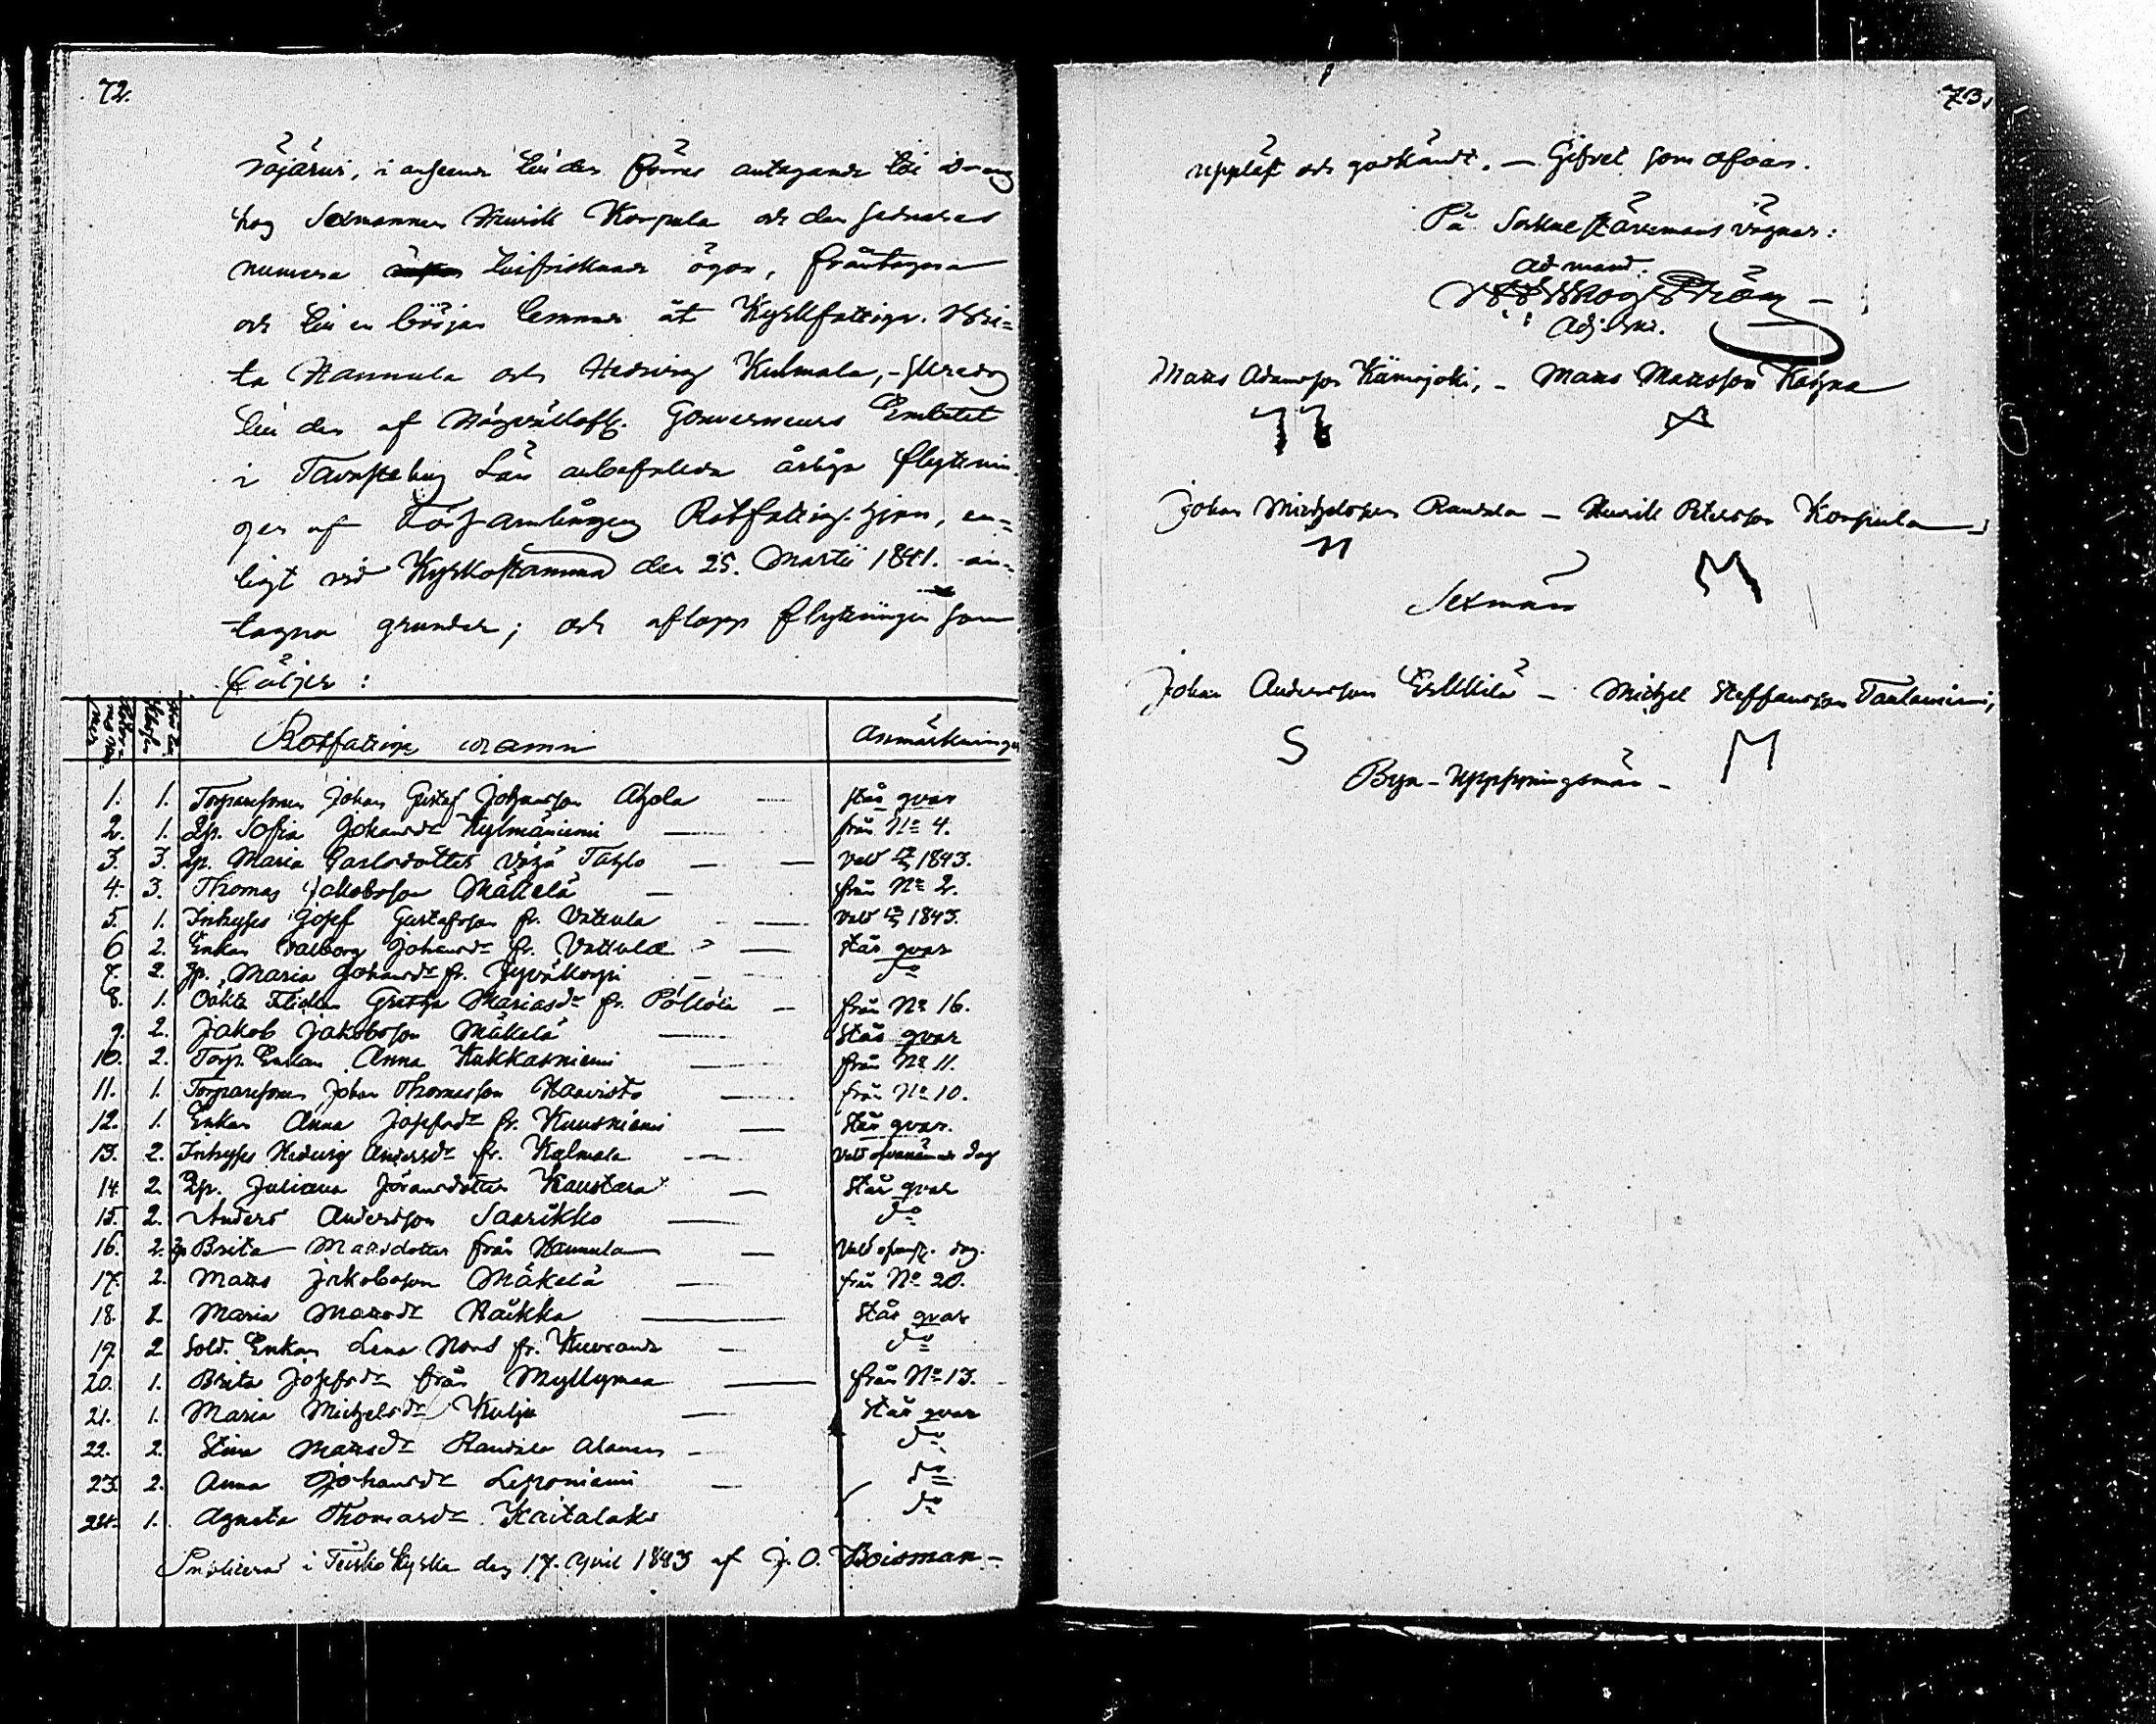 72.
näjärvi, i anseende till den förres antagande till dräng
hos Sexmannen Henrik Korpula och den sednares
numera tillfrisknade ögon, fråntagna
och till en början lemnade åt Kyrkfattige. Bri=
ta Hannula och Hedvig Kulmala, - skredog
till den af Högvällofl. Gouverneurs Embetet
i Tavastehus Län anbefallda årliga flyttnin
gen af Församlingens Rotfattig-hjon, en=
ligt vid Kyrkostämma den 25. Martii 1841. an=
tagna grunder; och aflopp flyttningen som
följer:
Rotfattigas namn Anmärkningar
1. 1. Torparesonen Johan Gustaf Johansson Ahola — står qvar
2. 1. Qp. Sofia Johansdr Kylmäniemi — från No 4.
3. 3. Qp. Maria Carlsdotter Vähä Tahlo — vald 17/4 1843.
4. 3. Thomas Jakobsson Mäkelä — från No 2.
5. 1. Inhyses Josef Gustafsson fr. Vattula — vald 17/4 1843.
6 2. Enkan Valborg Johansdr fr. Vattula — står qvar
7. 2. Qp. Maria Johansdr fr. Jyväkorpi — do
8. 1. Oäkta Flickan Greta Mariasdr fr. Pöllölä — från No 16.
9. 2. Jakob Jakobsson Mäkelä — står qvar
10. 2. Torp. Enkan Anna Kukkasniemi — från No 11.
11. 1. Torparesonen Johan Thomasson Haavisto — från No 10.
12. 1. Enkan Anna Josefsdr fr. Kuusniemi — står qvar.
13. 2. Inhyses Hedvig Andersdr fr. Kylmala — vald ofvannämnde dag
14. 2. Qp. Juliana Jöransdotter Kaustara — står qvar
15. 2. Anders Andersson Saarikko — do
16. 2. Qp Brita Mattsdotter från Hannula — vald ofvansk. dag.
17. 2. Matts Jakobsson Mäkelä — från No 20.
18. 2. Maria Mattsdr Räikkä — står qvar
19. 2 Sold. Enkan Lena Nord fr. Kuorande — do
20. 1. Brita Josefsdr från Myllymaa — från No 13.
21. 1. Maria Michelsdr Kulju — står qvar
22. 2. Stina Mattsdr Randala Alanen — do
23. 2. Anna Johansdr Leponiemi — do
24. 1. Agneta Thomasdr Kaitalaks do
Publicerad i Teisko Kyrka den 17. April 1843 af J. O. Boisman -
73.
Uppläst och godkändt. — Gifvet som ofvan.
På Sockne stämmans vägnar:
ad mand.
Adj: hr.
Matts Adamsson Kämojoki, - Matts Mattsson Kahra
Johan Michelsson Randala - Henrik Petersson Korpula
Sexmän
M
Johan Andersson Erkkilä - Michel Steffansson Taulaniemi,
S
M
Byn-Uppsyningsmän -